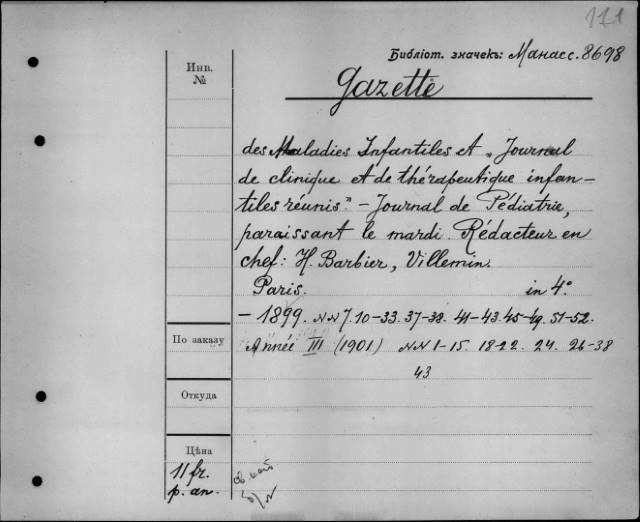 171
Библіот. значекъ: Манасс. 8698
Инв.
№
Gazette
des Maladies Infantiles et „Journal
de clinique et de thérapeutique infan–
tiles réunis." – Journal de Pédiatrie,
paraissant le mardi. Rédacteur en
chef: H. Barbier, Villemin.
Paris. in 4°.
– 1899. NN 7. 10–33. 37–38. 41–43. 45–49. 51–52.
По заказу
Année III (1901) NN 1–15. 18–22. 24. 26–38
43
Откуда
Цѣна
11 fr.
p. an.